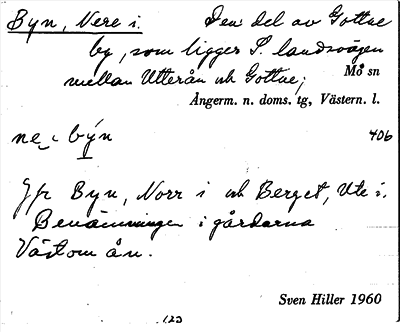 Byn, Nere i. Den del av Gottne
by, som ligger S. landsvägen
mellan Utterån och Gottne;
Mo sn
Ångerm. n. doms. tg, Västern. l.
ne i býn 406
Jfr Byn, Norr i och Berget, Ute i.
Benämningen i gårdarna
Väst om ån.
Sven Hiller 1960
123